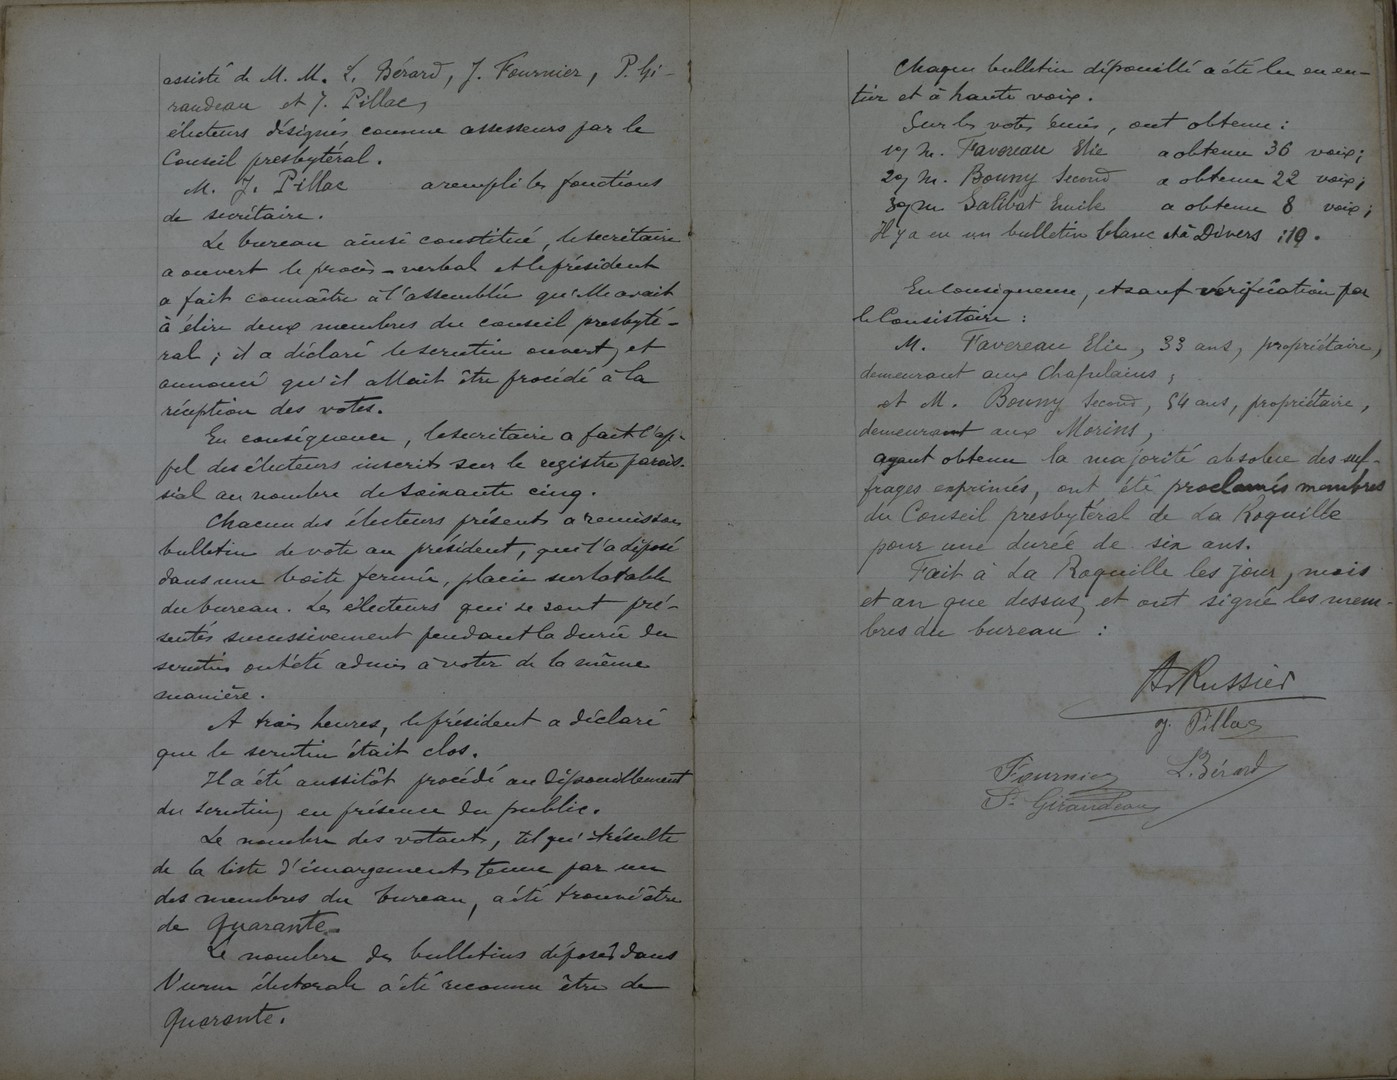 assisté de M. M. L. Bérard, J. Fournier, P. Gi-
raudeau et J. Pillac,
électeurs désignés comme assesseurs par le
Conseil presbytéral.
M. J. Pillac a rempli les fonctions
de secrétaire.
Le bureau ainsi constitué, le secrétaire
a ouvert le procès-verbal et le président
a fait connaître à l'assemblée qu'elle avait
à élire deux membres du conseil presbyté-
ral ; il a déclaré le scrutin ouvert, et
annoncé qu'il allait être procédé à la
réception des votes.
En conséquence, le secrétaire a fait l'ap-
pel des électeurs inscrits sur le registre parois-
sial au nombre de soixante cinq.
Chacun des électeurs présents a remis son
bulletin de vote au président, qui l'a déposé
dans une boîte fermée, placée sur la table
du bureau. Les électeurs qui se sont pré-
sentés successivement pendant la durée du
scrutin ont été admis à voter de la même
manière.
A trois heures, le président a déclaré
que le scrutin était clos.
Il a été aussitôt procédé au dépouillement
du scrutin, en présence du public.
Le nombre des votants, tel qu'il résulte
de la liste d'émargements tenue par un
des membres du bureau, a été trouvé être
de Quarante.
Le nombre des bulletins déposés dans
l'urne électorale a été reconnu être de
Quarante.
Chaque bulletin dépouillé a été lu en en-
tier et à haute voix.
Sur les votes émis, ont obtenu :
1o) M. Favereau Elie a obtenu 36 voix ;
2o) M. Bouny Second a obtenu 22 voix ;
3o) M Galibat Emile a obtenu 8 voix ;
Il y a eu un bulletin blanc et à Divers : 10.
En conséquence, et sauf vérification par
le Consistoire :
M. Favereau Elie, 33 ans, propriétaire,
demeurant aux Chapelains ;
et M. Bouny Second, 54 ans, propriétaire,
demeurant aux Morins,
ayant obtenu la majorité absolue des suf-
frages exprimés, ont été proclamés membres
du Conseil presbytéral de La Roquille
pour une durée de six ans.
Fait à La Roquille les jour, mois
et an que dessus, et ont signé les mem-
bres du bureau :
Ad Russier
J. Pillac
Fournier L. Bérard
P. Giraudeau